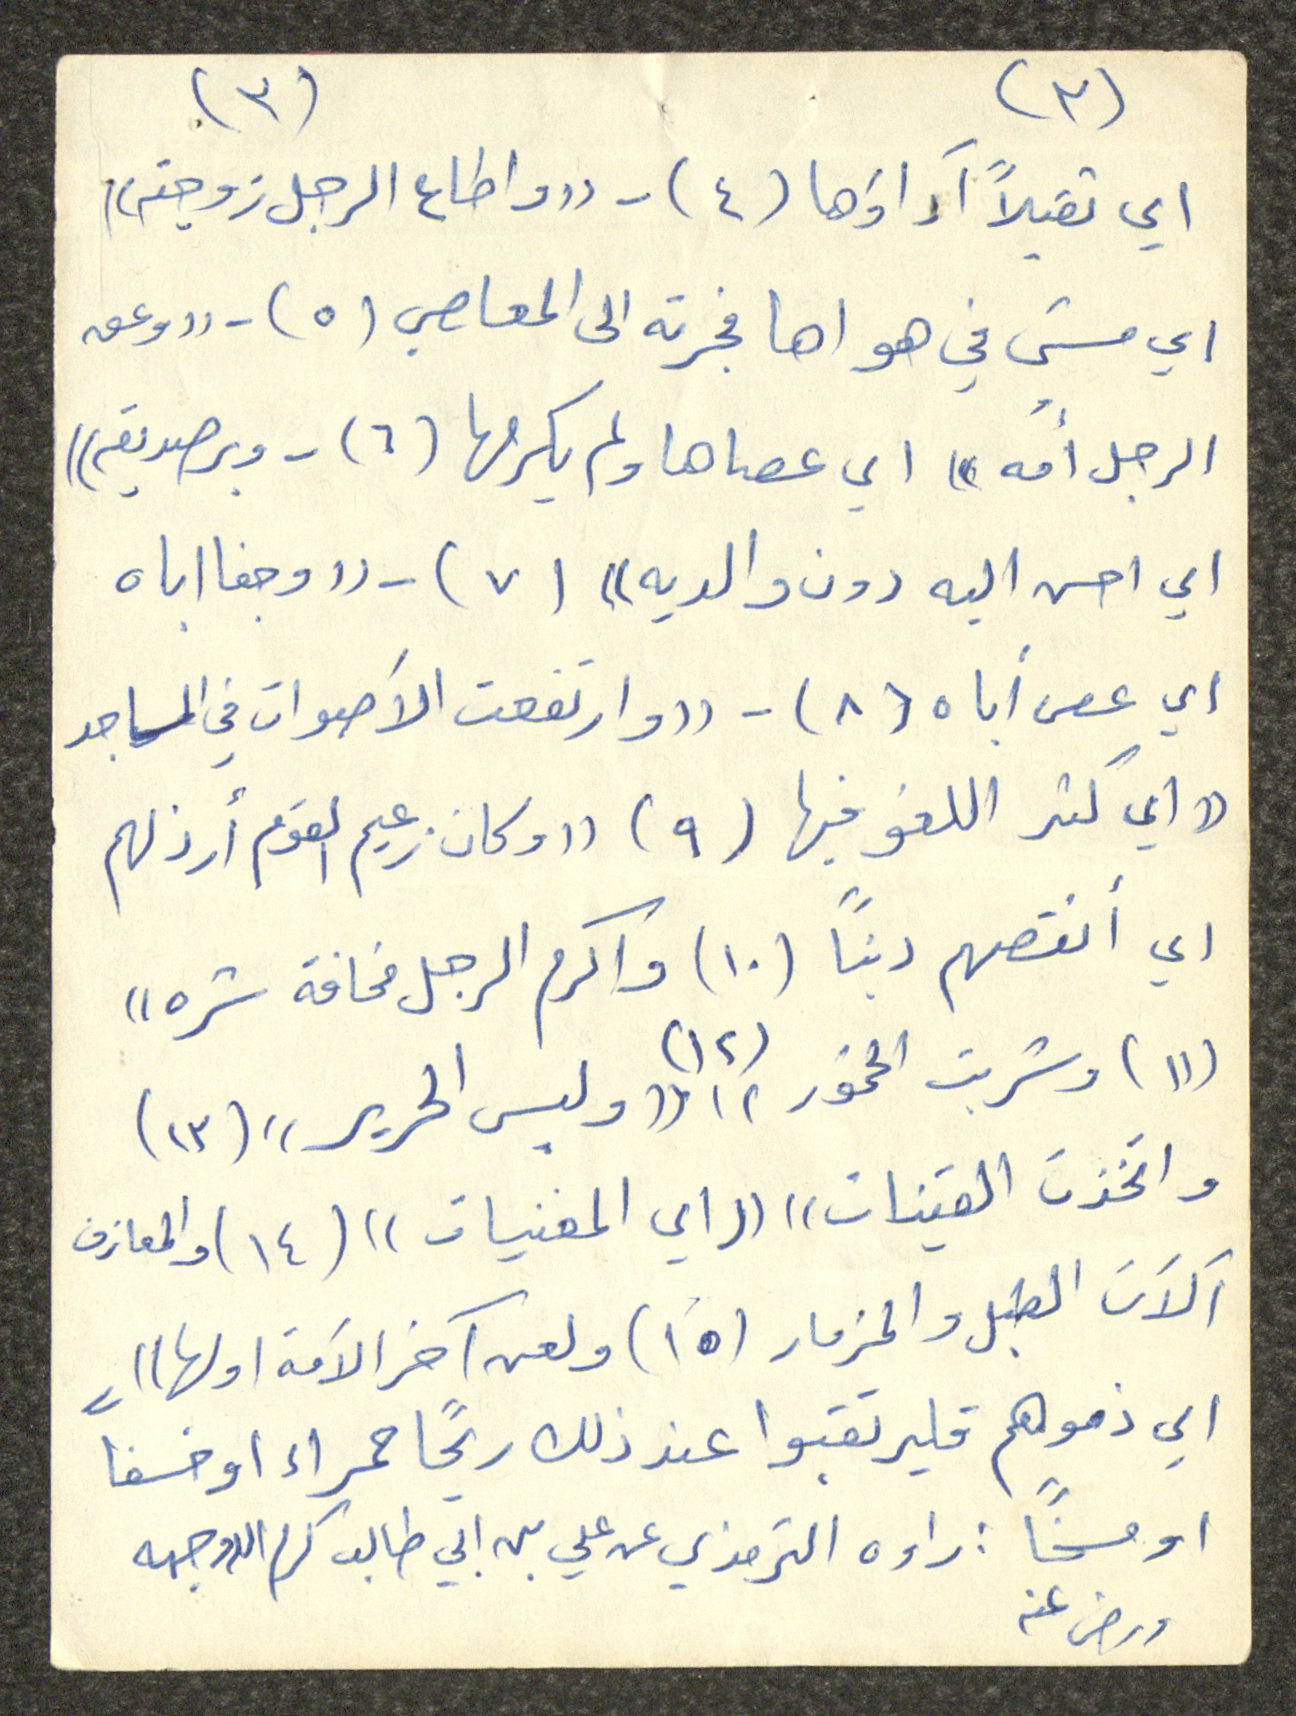 (٣) (٣)
اي ثقيلاً آداؤها (٤) - ((واطاع الرجل زوجته))
اي مشى في هواها فجرته الى المعاصي (٥) - ((وعق
الرجل أمّه)) اي عصاها ولم يكرمها (٦) - وبر صديقه))
اي احسن اليه دون والديه)) (٧) - ((وجفا اباه
اي عصى أباه (٨) - ((وارتفعت الأصوات في المساجد
((اي كثر اللغو فيها (٩) ((وكان زعيم القوم أرذلهم
اي أنقصهم ديناً (١٠) واكرم الرجل مخافة شره))
(١١) وشربت الخمور)) (١٢) ((ولبس الحرير)) (١٣)
واتخذت القينات)) ((اي المغنيات)) (١٤) والمعازف
آلات الطبل والمزمار (١٥) ولعن آخر الأمة اولها))
اي ذموهم فليرتقبوا عند ذلك ريحًا حمراء او خسفاً
او مسخًا : راوه الترمذي عن علي بن ابي طالب كرم الله وجهه
ورضى عنه